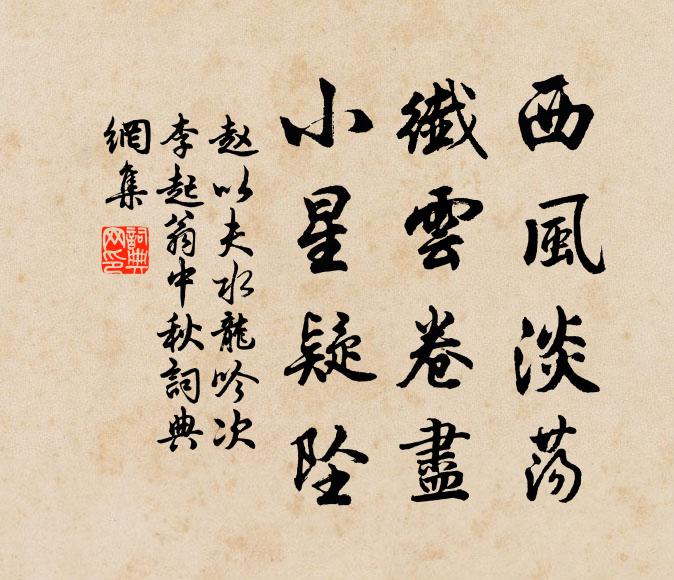 西風淡荡
纖雲卷盡
小星疑坠
赵以夫水龍吟次
李起翁中秋詞典
網集
詞典
网印